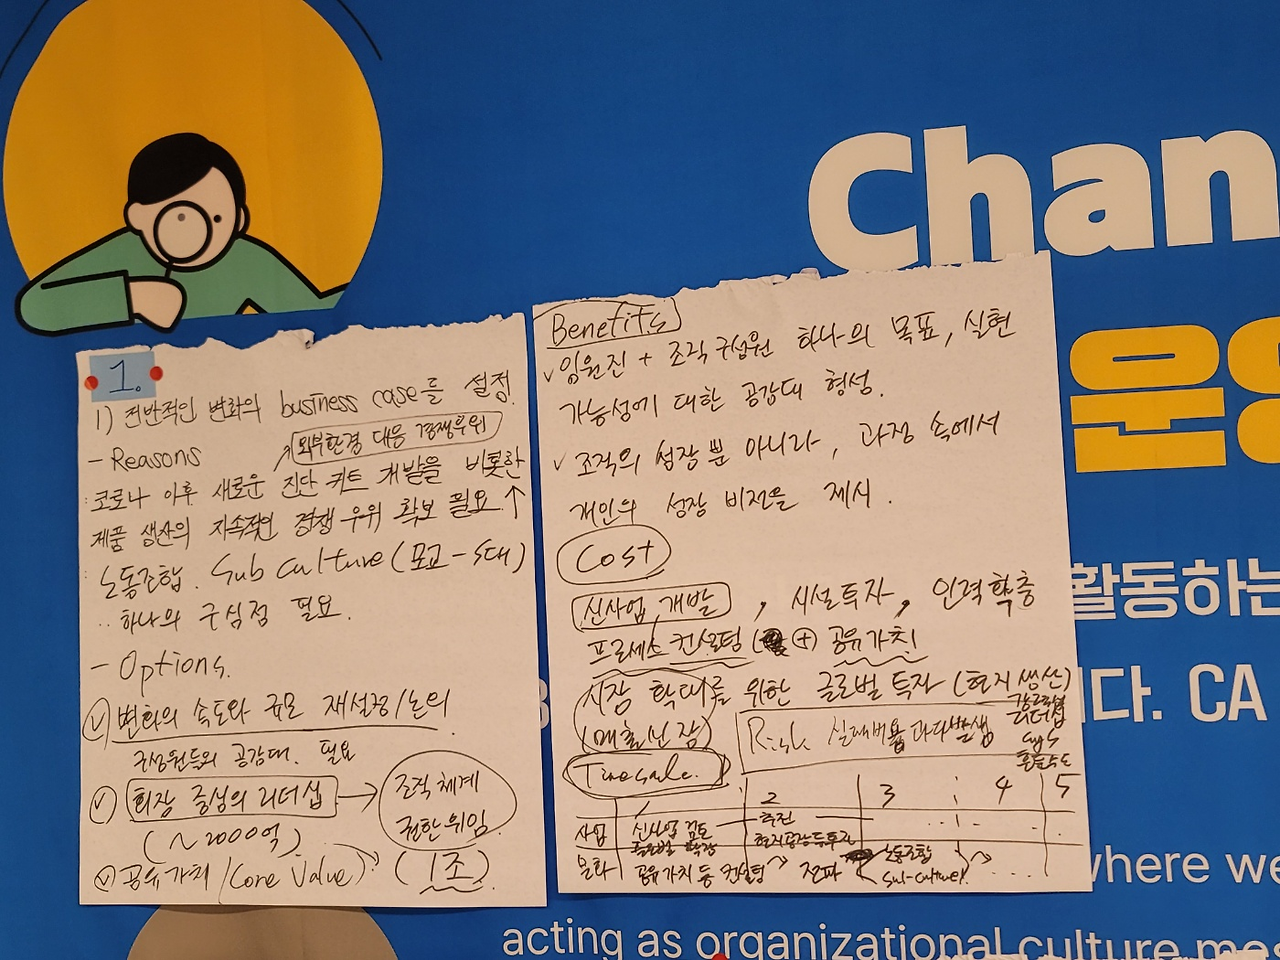 Chan
운영
활동하는
다. CA
where we
acting as organizational culture mes
1.
1) 전반적인 변화의 business case를 설정.
- Reasons
외부환경 대응 경쟁우위
코로나 이후 새로운 진단 키트 개발을 비롯한
제품 생산의 지속적인 경쟁 우위 확보 필요.↑
노동조합. Sub culture (모교-S대)
하나의 구심점 필요.
- Options.
변화의 속도와 규모 재설정/논의
구성원들의 공감대. 필요
회장 중심의 리더십 → 조직체계
권한위임.
(~2000억)
(1조)
공유가치/(Core Value)
Benefits
임원진 + 조직구성원 하나의 목표, 실현
가능성에 대한 공감대 형성.
조직의 성장 뿐 아니라, 과정 속에서
개인의 성장 비전을 제시.
Cost
신사업 개발, 시설투자, 인력확충
프로세스 컨설팅 (+) 공유가치
시장 확대를 위한 글로벌 투자 (현지 생산)
(매출신장)
Risk 실패비용 과다발생
리더십
Timescale.
2 3 4 5
사업 신사업 검토 추진
글로벌 확장 현지공장 등 투자
문화 공유가치 등 컨설팅 → 전파 노동조합
Sub-culture